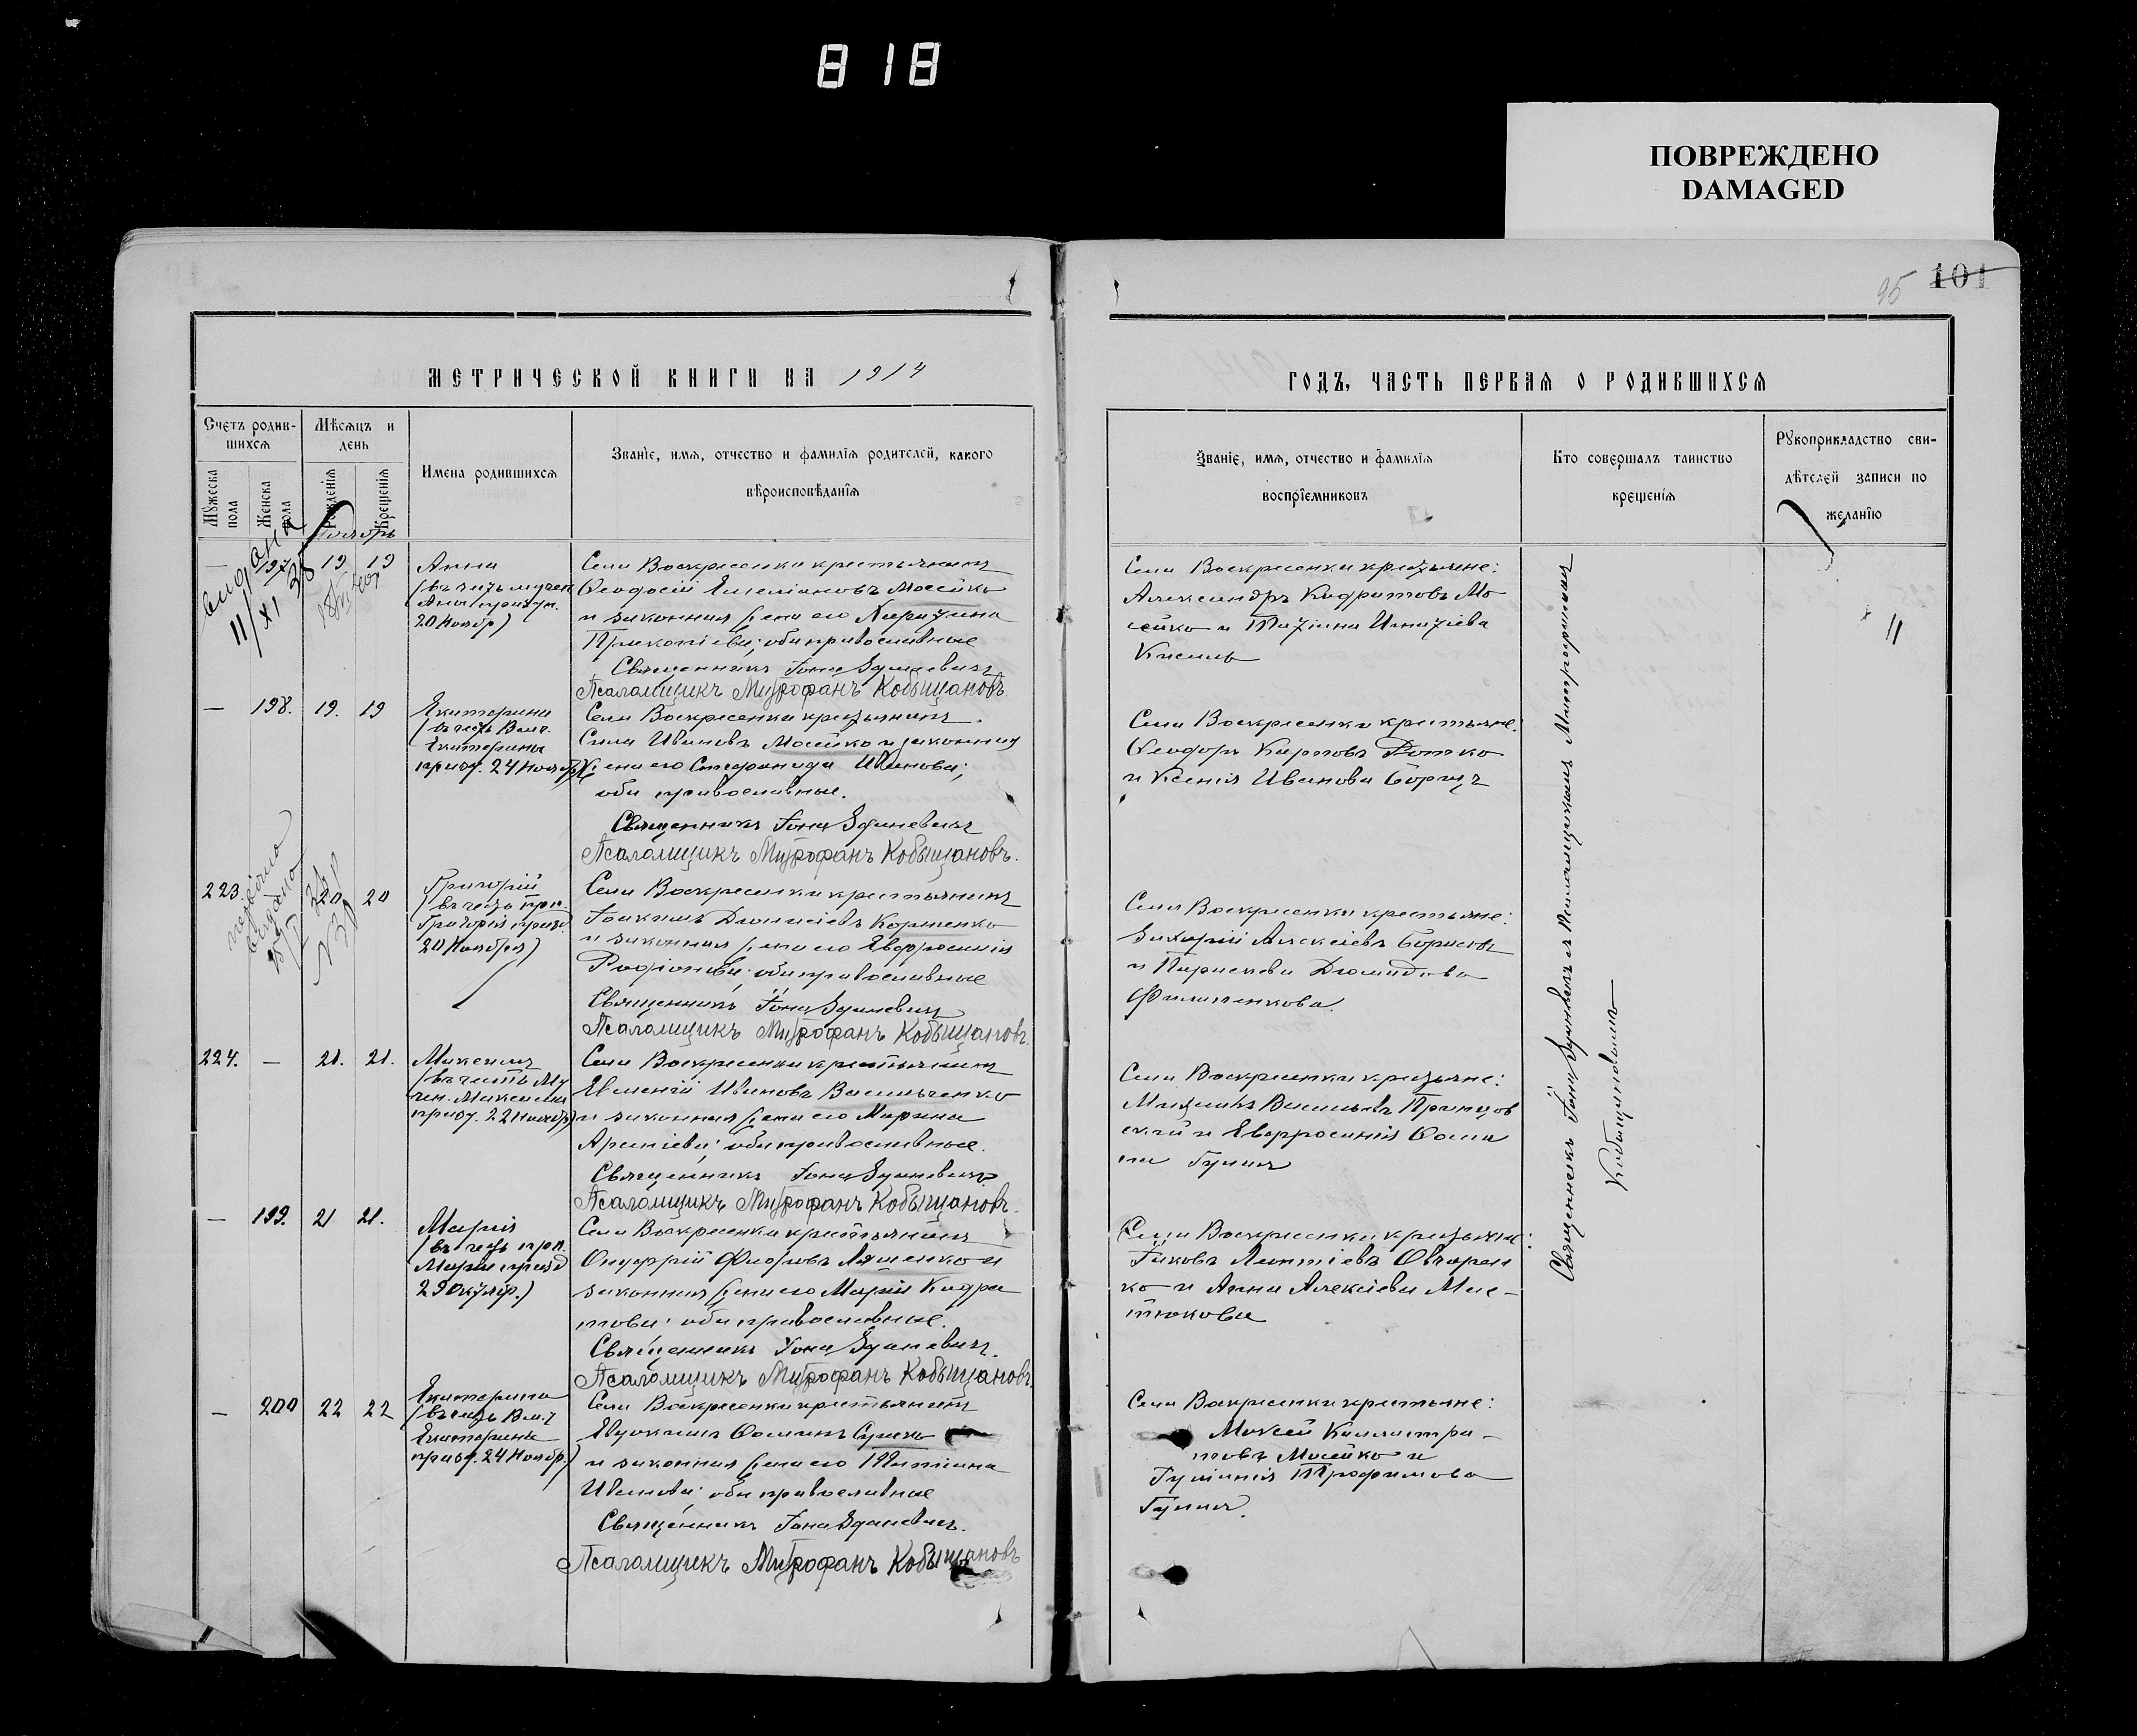 818
ПОВРЕЖДЕНО
DAMAGED
95 101
МЕТРИЧЕСКОЙ КНИГИ НА 1914
ГОДЪ, ЧАСТЬ ПЕРВАЯ О РОДИВШИХСЯ
Счетъ родив-
шихся
Мѣсяцъ и
день
Мужеска
пола
Женска
пола
Рожденія
Крещенія
Имена родившихся
Званіе, имя, отчество и фамилія родителей, какого
вѣроисповѣданія
Званіе, имя, отчество и фамилія
воспріемниковъ
Кто совершалъ таинство
крещенія
Рукоприкладство сви-
дѣтелей записи по
желанію
Ноябрь
видана
11/XI 38
— 197 19 19
Анна
(въ честь мучен.
Анны празд.
20 Ноябр)
Села Воскресенки крестьянинъ
Ѳеодосій Емеліановъ Мосейко
и законная жена его Харитина
Прокопіева; оба православные
Священникъ Іона Здановичъ
Псаломщикъ Митрофанъ Кобыщановъ.
Села Воскресенки крестьяне:
Александръ Кодратовъ Мо
сейко и Татіана Игнатіева
Кисиль
11
— 198. 19. 19
Екатерина
(въ честь Велм.
Екатерины
празд. 24 Ноябр)
Села Воскресенки крестьянинъ.
Сила Ивановъ Мосейко и законная
жена его Стефанида Иванова;
оба православные.
Священникъ Іона Здановичъ
Псаломщикъ Митрофанъ Кобыщановъ.
Села Воскресенки крестьяне:
Ѳеодоръ Карповъ
и Ксенія Иванова Борщъ
видано
223. 20 20
Григорій
(въ честь прп.
Григорія празд.
20 Ноября)
Села Воскресенки крестьянинъ
Іоакимъ Діонисіевъ Корженко
и законная жена его Евфросинія
Родіонова; оба православные
Священникъ Іона Здановичъ
Псаломщикъ Митрофанъ Кобыщановъ.
Села Воскресенки крестьяне:
Захарій Алексіевъ
и Параскева Діомидова
Филипенкова.
224. — 21. 21.
Михаилъ
(въ честь Му
чен. Михаила
празд. 22 Ноябр)
Села Воскресенки крестьянинъ
Евменій Ивановъ Васильченко
и законная жена его Марина
Арсеніева; оба православные.
Священникъ Іона Здановичъ
Псаломщикъ Митрофанъ Кобыщановъ.
Села Воскресенки крестьяне:
Михаилъ Васильевъ
и Евфросинія Ѳоми
на
— 199. 21 21.
Марія
(въ честь прп.
Маріи празд
29 Октябр.)
Села Воскресенки крестьянинъ
Онуфрій Фіодровъ Ляшенко и
законная жена его Марія Кодра
това; оба православные.
Священникъ Іона Здановичъ.
Псаломщикъ Митрофанъ Кобыщановъ.
Села Воскресенки крестьяне:
Іаковъ Леонтіевъ Овчарен
ко и Анна Алексіева Мас-
тюкова
— 200 22 22
Екатерина
(въ честь Вм.
Екатерины
празд. 24 Ноябр.)
Села Воскресенки крестьянинъ
Евдокимъ Ѳоминъ
и законная жена его Татіана
Иванова; оба православные
Священникъ Іона Здановичъ.
Псаломщикъ Митрофанъ Кобыщановъ
Села Воскресенки крестьяне:
Моисей Каллистра-
товъ Мосейко и
Іуліанія Трофимова
Священникъ Іона Здановичъ съ Псаломщикомъ Митрофаномъ
Кобыщановымъ